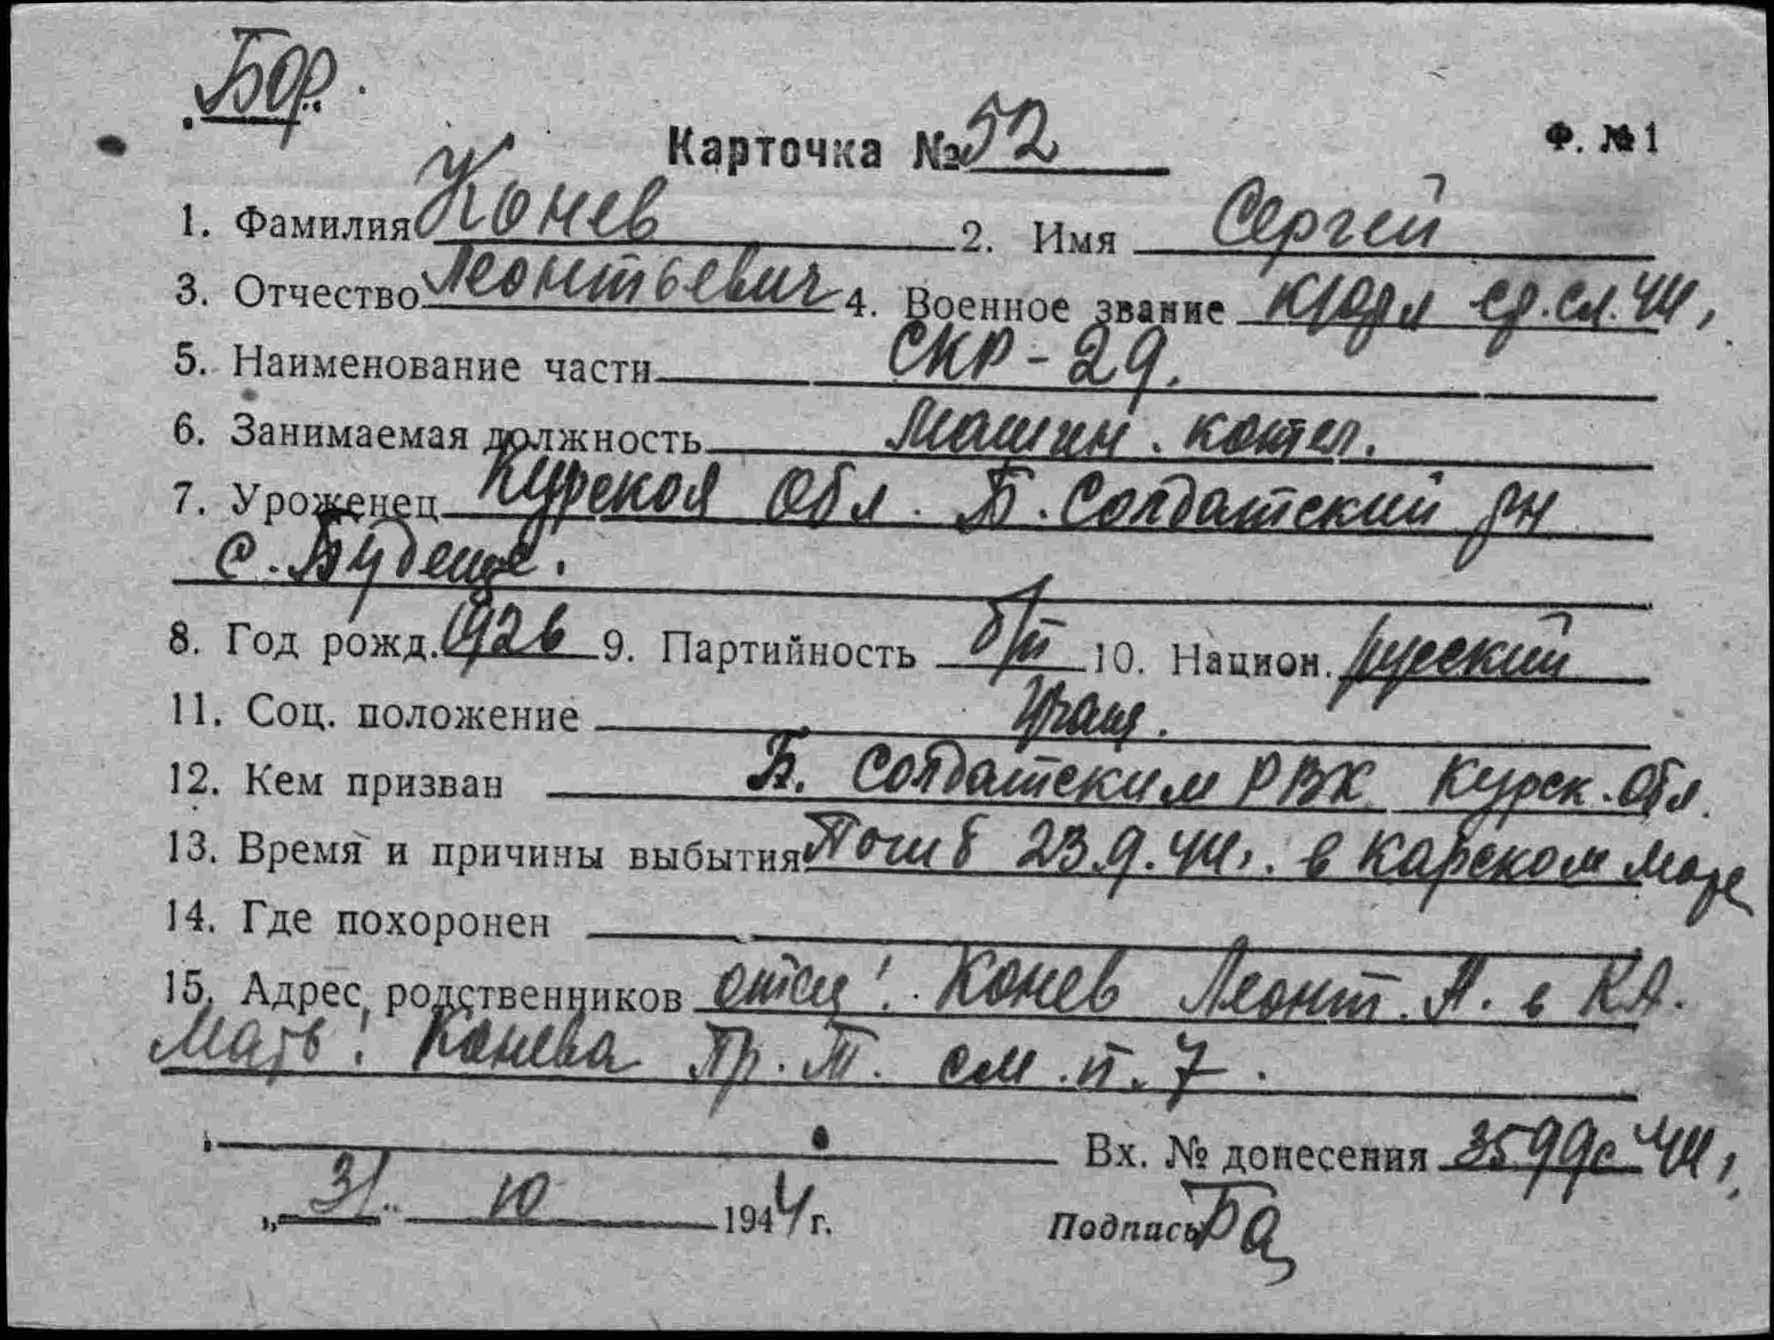 Бор.
Карточка № 52 Ф. № 1
1. Фамилия Конев 2. Имя Сергей
3. Отчество Леонтьевич 4. Военное звание ср. сл. 44,
5. Наименование части СКР-29.
6. Занимаемая должность Машин. котел.
7. Уроженец Курской Обл. Б. Солдатский рн
с. Будище.
8. Год рожд. 1926 9. Партийность б/п 10. Национ. русский
11. Соц. положение Учащ.
12. Кем призван Б. Солдатским РВК Курск. Обл.
13. Время и причины выбытия Погиб 23.9.44г. в Карском море
14. Где похоронен
15. Адрес родственников отец: Конев Леонт. А. в КА.
Мать: Конева Пр. Т. см. п. 7.
Вх. № донесения 3599с 44г.
„31“ 10 1944 г. Подпись